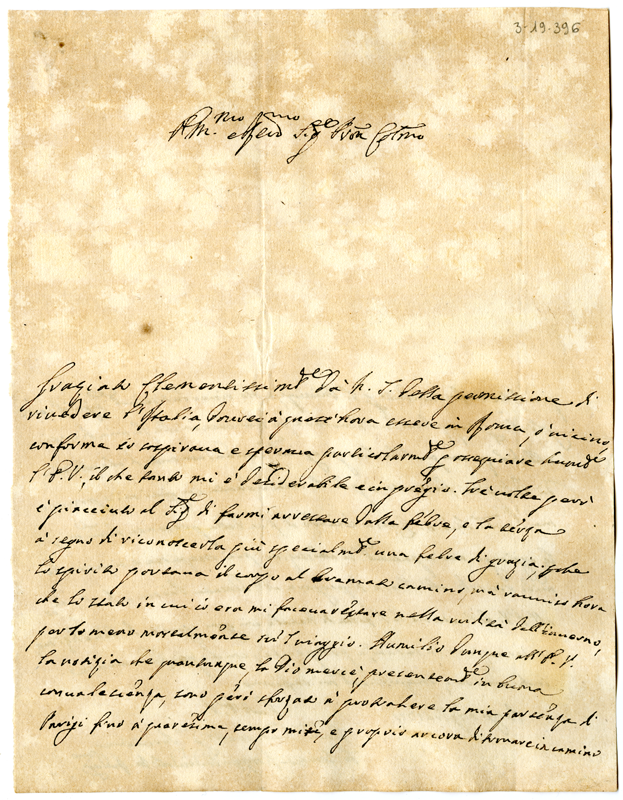 3-19-396
R.mo e Rev.mo Sig.re Pron Col.mo
Graziato Clementissim.te da N. S. della permissione di
rivedere l'Italia, dovrei à quest'hora essere in Roma, ò vicino,
conforme io sospirava e sperava particolarm.te p ossequiare humil.te
l' P. V., il che tanto mi è desiderabile e in pregio. Tre volte però
è piacciuto al Sig.re di farmi arrestare dalla febre, e la terza
à segno di riconoscerla più specialm.te una febre di grazia; p che
lo spirito portava il corpo al bramato cammino, mà
che lo stato in cui io era mi facea restare nella rudità dell'inverno,
per lo meno mortalmente sul viaggio. Humilio dunque all' P. V.
la notizia che quantunque, la Dio mercè, presentem.te in buona
convalescenza, sono però sforzato à protrahere la mia partenza di
Parigi fino à quaresima, tempo mite, e proprio ancora di tornare in camino